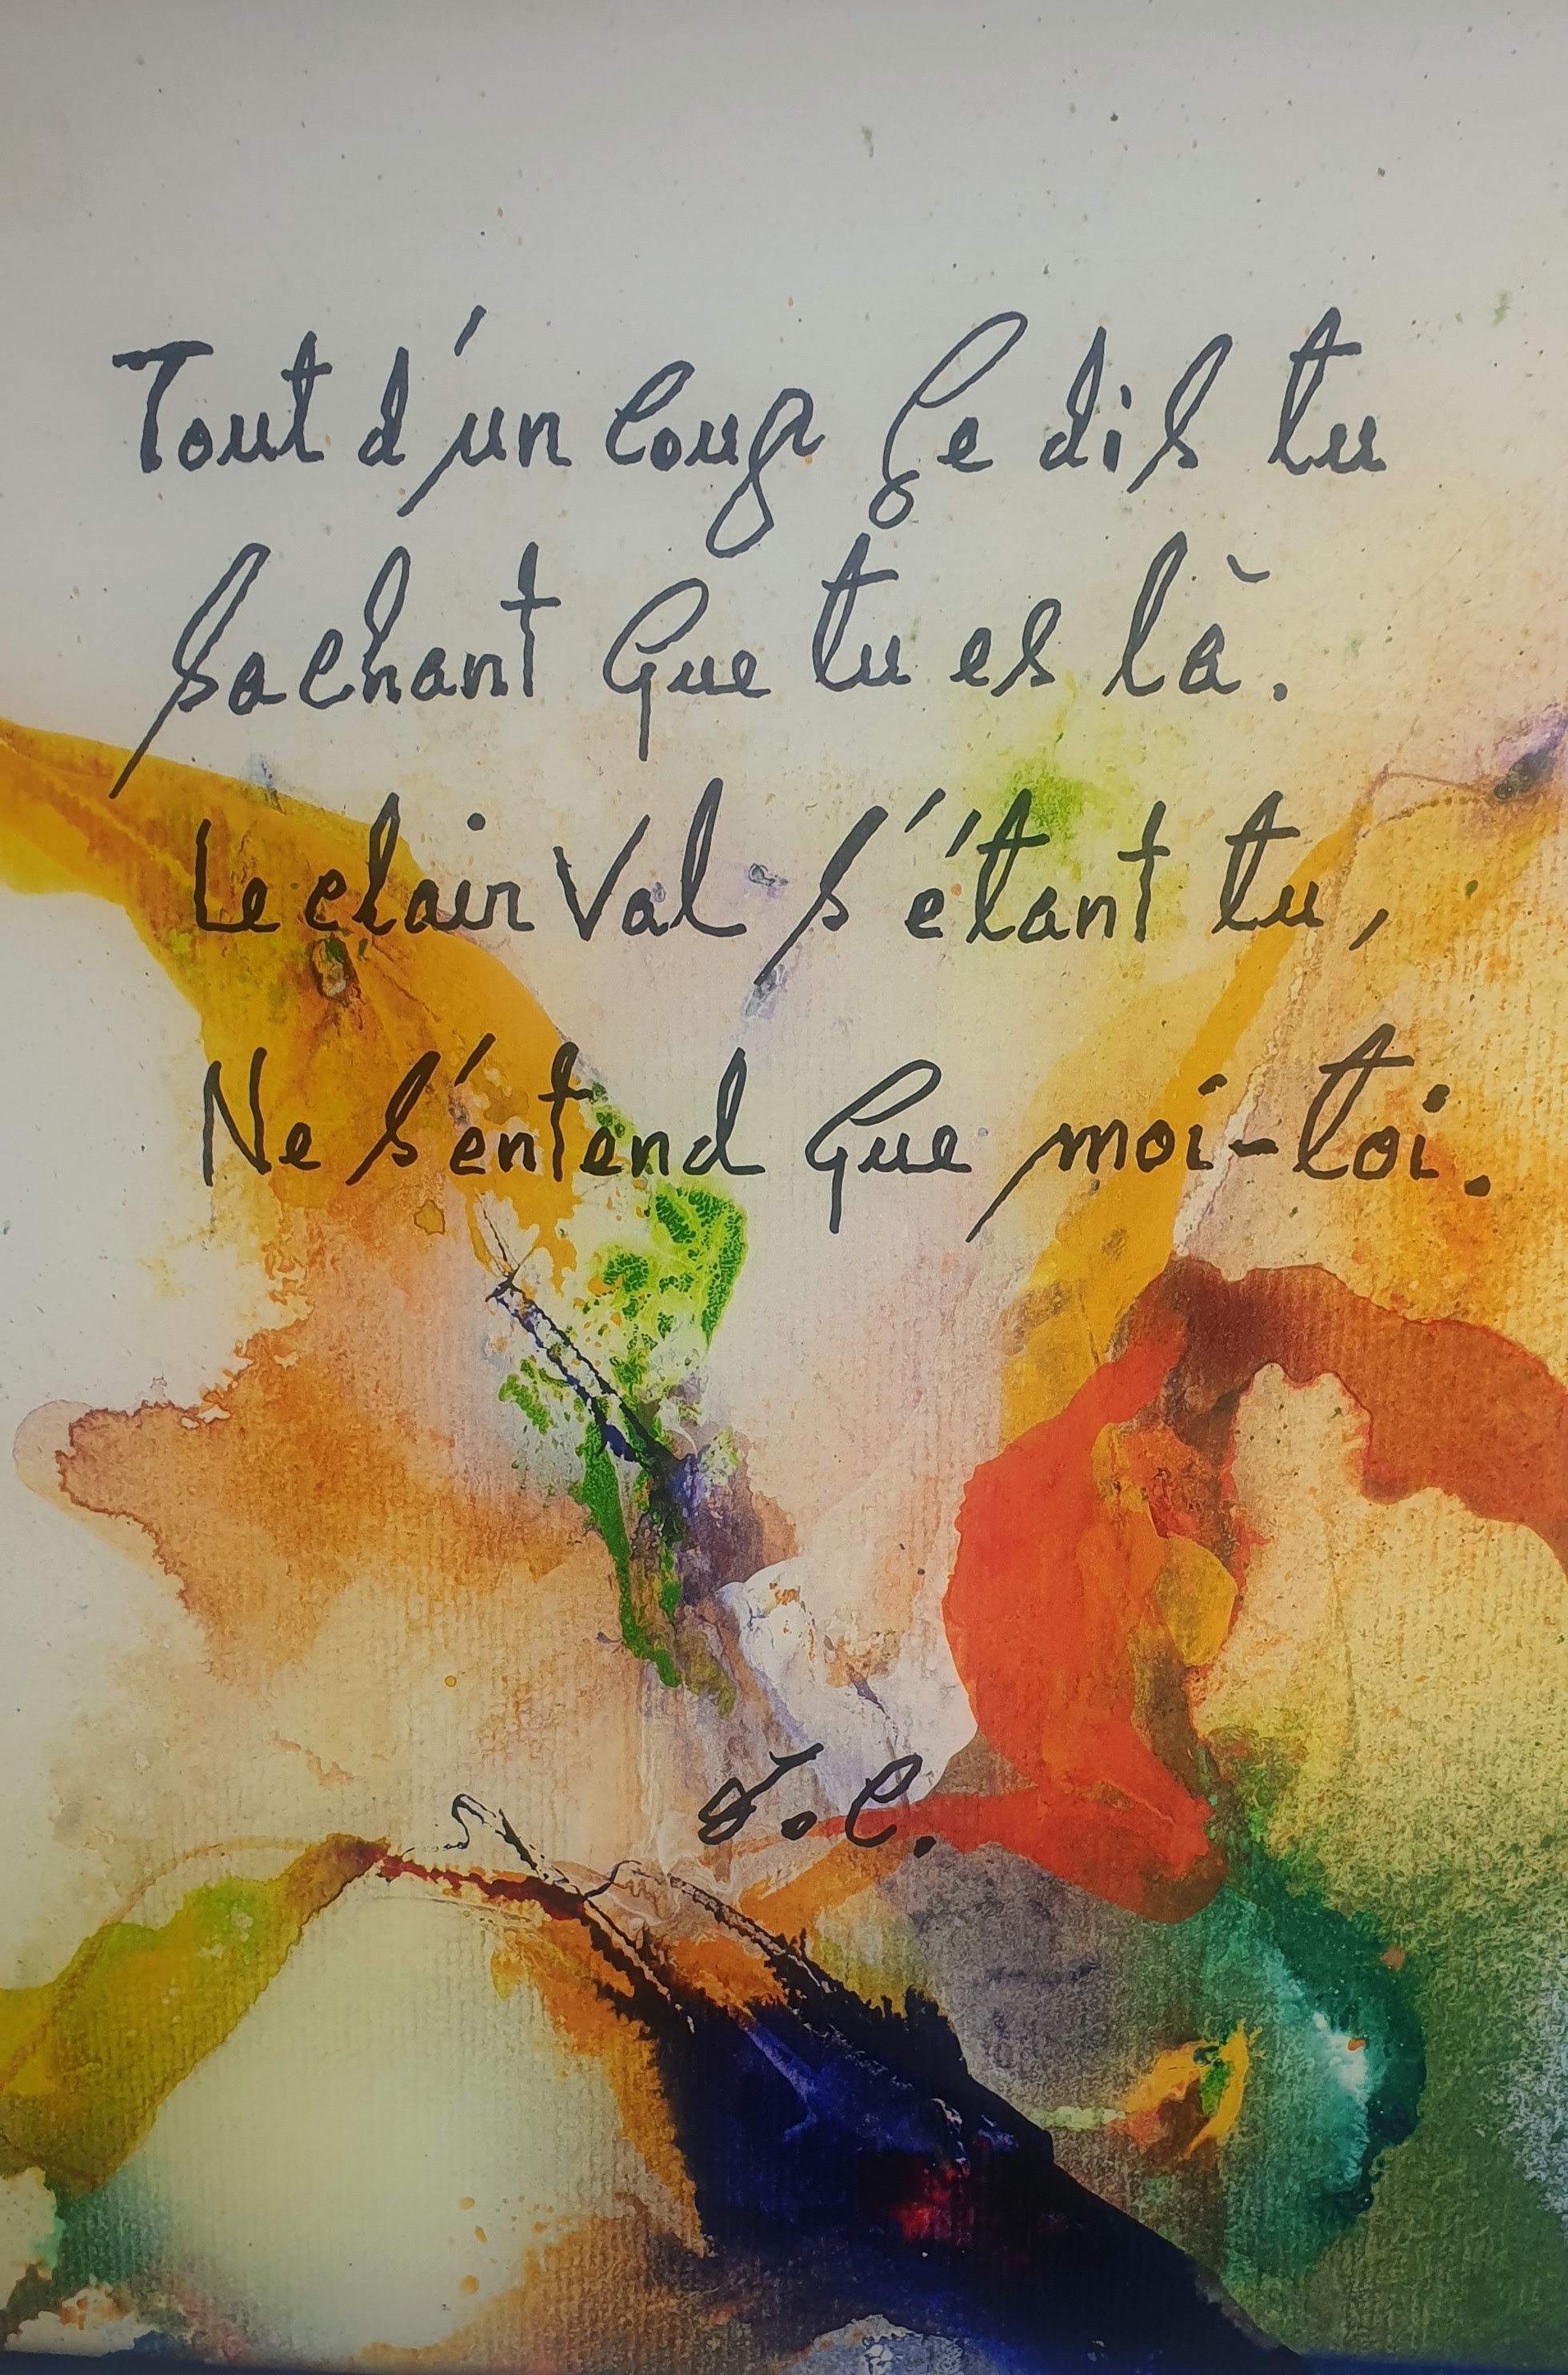 Tout d'un coup ce dis tu
Sachant que tu es là.
Le clair Val s'étant tu,
Ne s'entend que moi-toi.